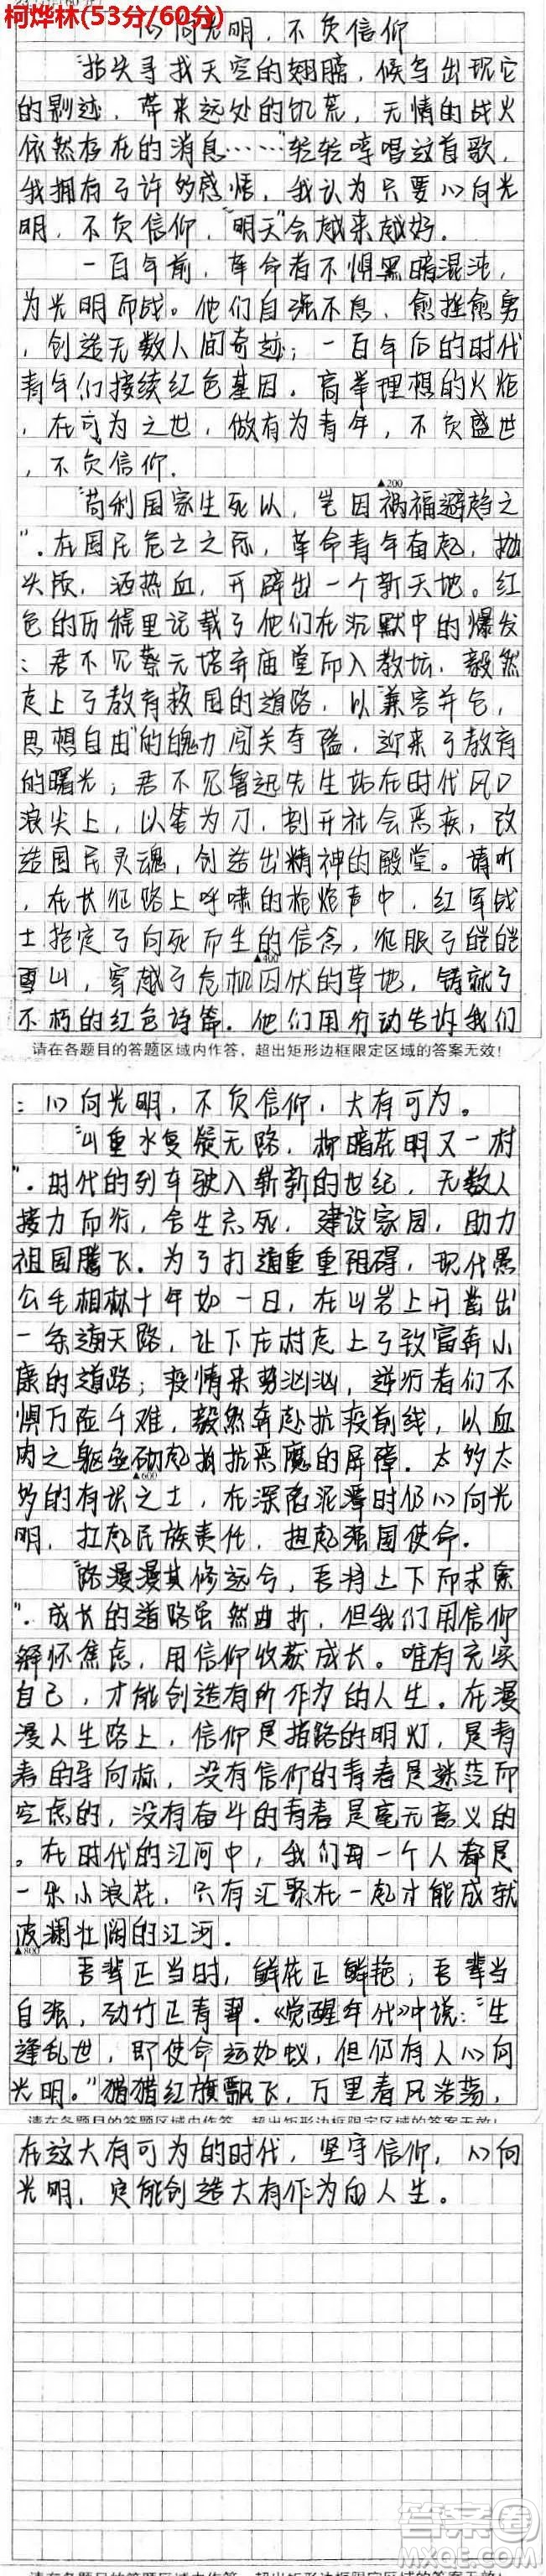 柯烨林(53分/60分)
心向光明，不负信仰
“指尖寻找天空的翅膀，候鸟出现它
的影迹，带来远处的饥荒，无情的战火
依然存在的消息……”轻轻哼唱这首歌，
我拥有了许多感悟，我认为只要心向光
明，不负信仰，“明天”会越来越好。
一百年前，革命者不惧黑暗混沌，
为光明而战。他们自强不息，愈挫愈勇
，创造无数人间奇迹；一百年后的时代
青年们接续红色基因，高举理想的火炬
，在可为之世，做有为青年，不负盛世
，不负信仰。
▲200
“苟利国家生死以，岂因祸福避趋之
”。在国民危亡之际，革命青年奋起，抛
头颅，洒热血，开辟出一个新天地。红
色的历程里记载了他们在沉默中的爆发
：君不见蔡元培弃庙堂而入教坛，毅然
走上了教育救国的道路，以“兼容并包，
思想自由”的魄力闯关夺隘，迎来了教育
的曙光；君不见鲁迅先生站在时代风口
浪尖上，以笔为刀，剖开社会恶疾，改
造国民灵魂，创造出精神的殿堂。请听
，在长征路上呼啸的枪炮声中，红军战
士抱定了向死而生的信念，征服了皑皑
▲400
雪山，穿越了危机四伏的草地，铸就了
不朽的红色诗篇。他们用行动告诉我们
请在各题目的答题区域内作答，超出矩形边框限定区域的答案无效！
：心向光明，不负信仰，大有可为。
“山重水复疑无路，柳暗花明又一村
”。时代的列车驶入崭新的世纪，无数人
接力而行，舍生忘死，建设家园，助力
祖国腾飞。为了打通重重阻碍，现代愚
公毛相林十年如一日，在山岩上开凿出
一条通天路，让下庄村走上了致富奔小
康的道路；疫情来势汹汹，逆行者们不
惧万险千难，毅然奔赴抗疫前线，以血
肉之躯垒砌起抵抗恶魔的屏障。太多太
▲600
多的有识之士，在深陷泥潭时仍心向光
明，扛起民族责任，担起强国使命。
“路漫漫其修远兮，吾将上下而求索
”。成长的道路虽然曲折，但我们用信仰
解怀焦虑，用信仰收获成长。唯有充实
自己，才能创造有所作为的人生。在漫
漫人生路上，信仰是指路的明灯，是青
春的导向标，没有信仰的青春是迷茫而
空虚的，没有奋斗的青春是毫无意义的
。在时代的江河中，我们每一个人都是
一朵小浪花，只有汇聚在一起才能成就
波澜壮阔的江河。
▲800
吾辈正当时，鲜花正鲜艳；吾辈当
自强，劲竹正青翠。《觉醒年代》中说：“生
逢乱世，即使命运如蚁，但仍有人心向
光明。”猎猎红旗飘飞，万里春风浩荡，
请在各题目的答题区域内作答，超出矩形边框限定区域的答案无效！
在这大有可为的时代，坚守信仰，心向
光明，定能创造大有作为的人生。
答案圈
MXQE.COM
请在各题目的答题区域内作答，超出矩形边框限定区域的答案无效！